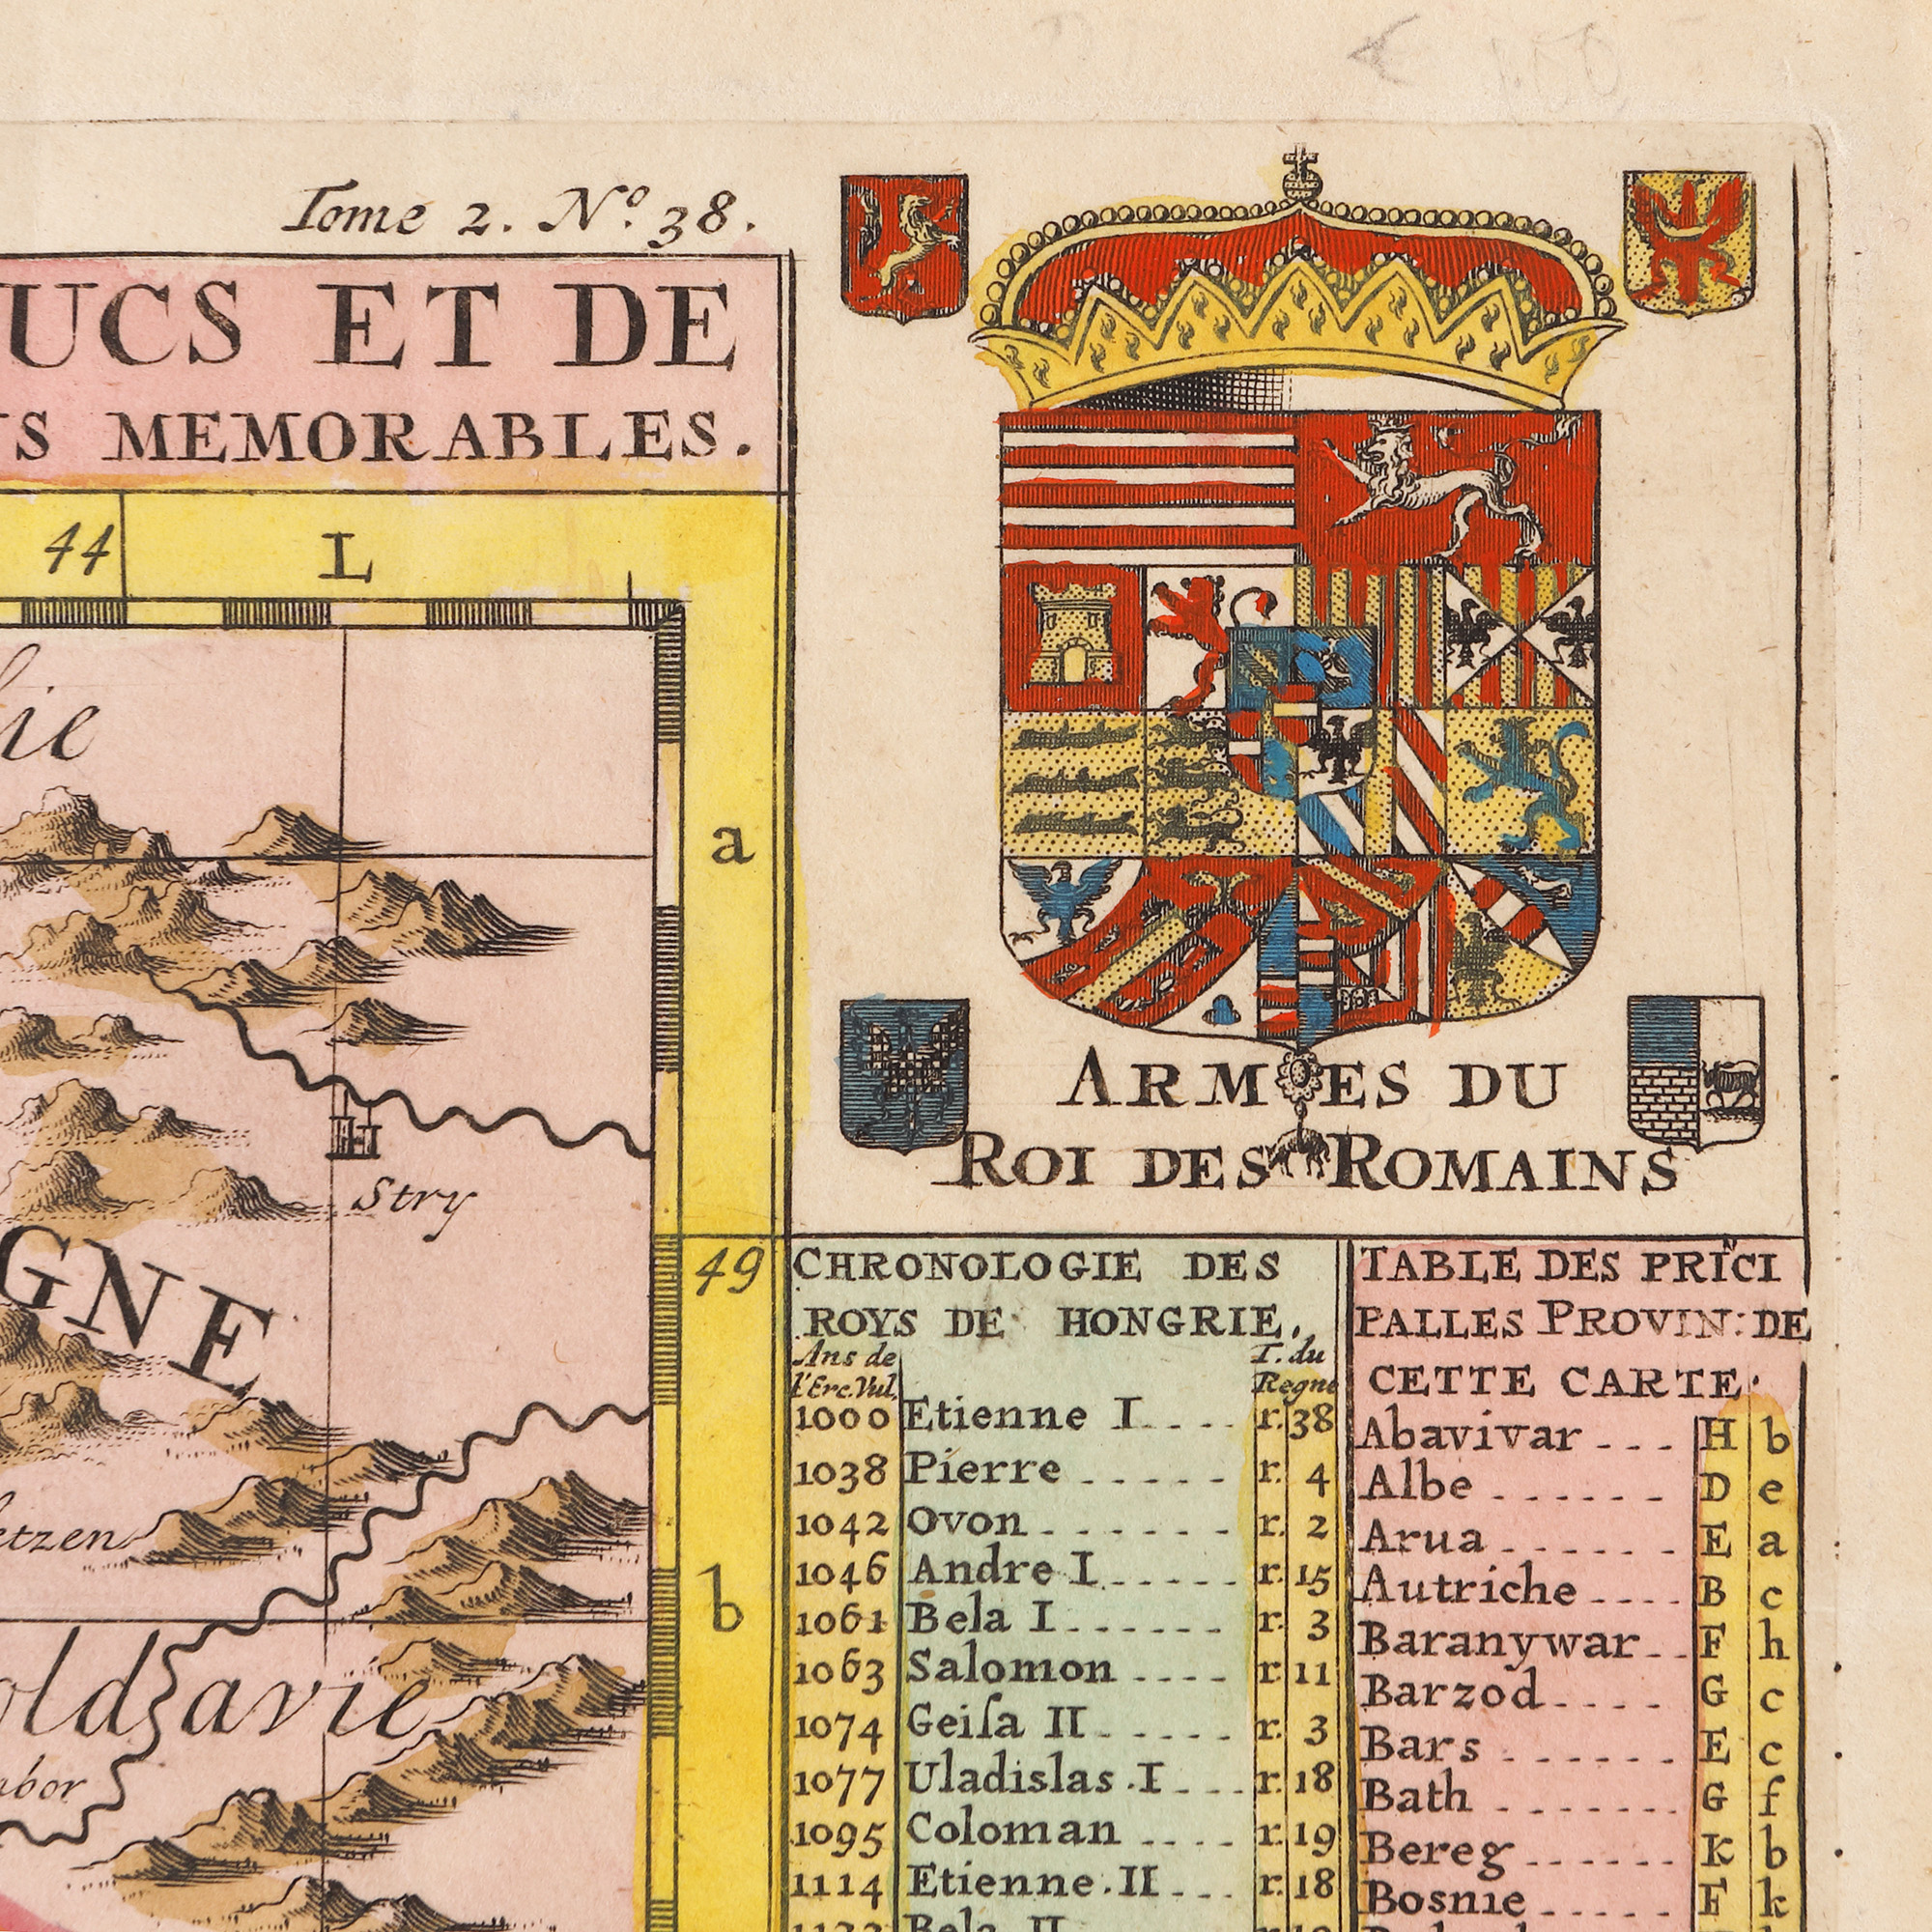 Tome 2. Nº. 38.
UCS ET DE
S MEMORABLES.
44 L
lie
a
Stry
GNE
49
etzen
b
old avie
abor
ARMES DU
ROI DES ROMAINS
CHRONOLOGIE DES
ROYS DE HONGRIE.
Ans de
l'Ere.Vul.
T. du
Regne
1000 Etienne I.... r. 38
1038 Pierre ..... r. 4
1042 Ovon ...... r. 2
1046 Andre I ..... r. 15
1061 Bela I ...... r. 3
1063 Salomon .... r. 11
1074 Geiſa II ..... r. 3
1077 Uladislas .I ... r. 18
1095 Coloman .... r. 19
1114 Etienne .II ... r. 18
Bela II
TABLE DES PRĪCI
PALLES PROVIN: DE
CETTE CARTE.
Abavivar ... H b
Albe ...... D e
Arua ...... E a
Autriche .... B c
Baranywar .. F h
Barzod .... G c
Bars ...... E c
Bath ...... G f
Bereg ...... K b
Bosnie ..... F k